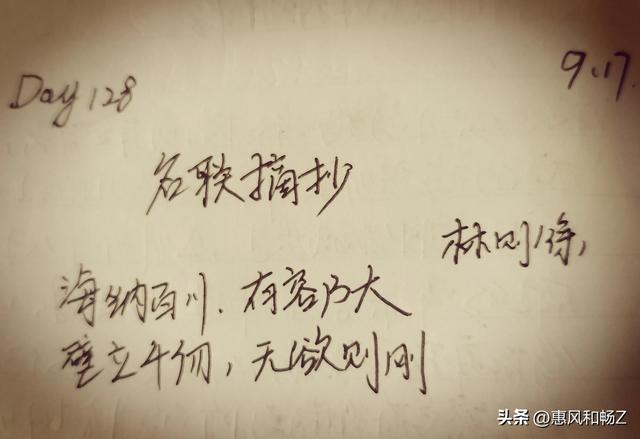 Day 128
9.17.
名联摘抄
林则徐
海纳百川,有容乃大
壁立千仞,无欲则刚
头条 @惠风和畅Z